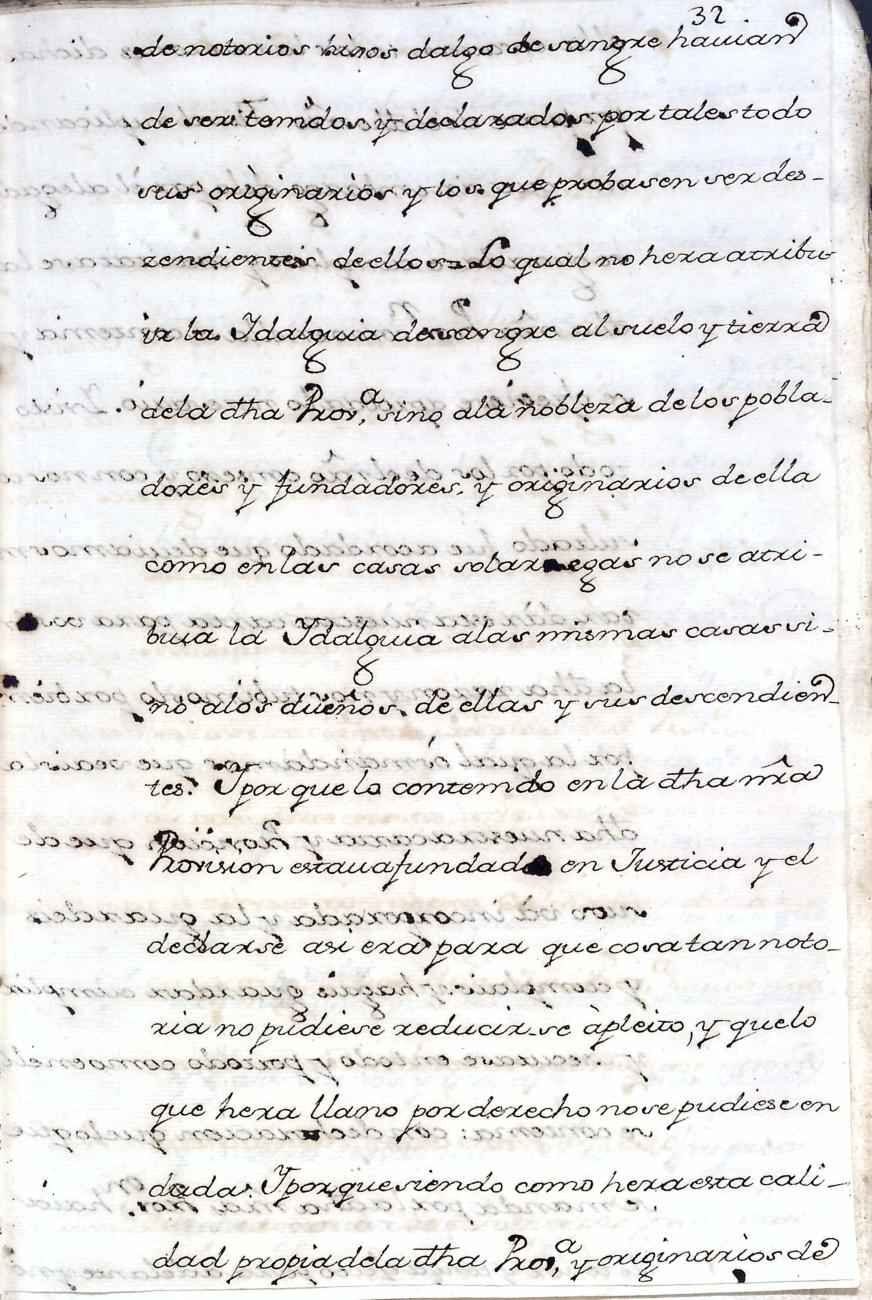 32
de notorios hixos dalgo de sangre hauian
de ser tenidos y declarados por tales todo
sus originarios y los que probasen ser des-
zendientes de ellos = Lo qual no hera atribu-
ir la Idalguia de sangre al suelo y tierra
dela dha Prov.ª, sino ala nobleza de los pobla-
dores y fundadores, y originarios de ella
como en las casas solariegas no se atri-
buia la Ydalguia alas mismas casas si-
no alos dueños de ellas y sus descendien-
tes. Y por que lo contenido en la dha nra
Provision estaua fundado en Justicia y el
declarse asi era para que cosa tan noto-
ria no pudiese reducir-se à pleito, y quelo
que hera llano por derecho nose pudiese en
duda. Y porque siendo como hera esta cali-
dad propia dela dha Prov.ª, y originarios de